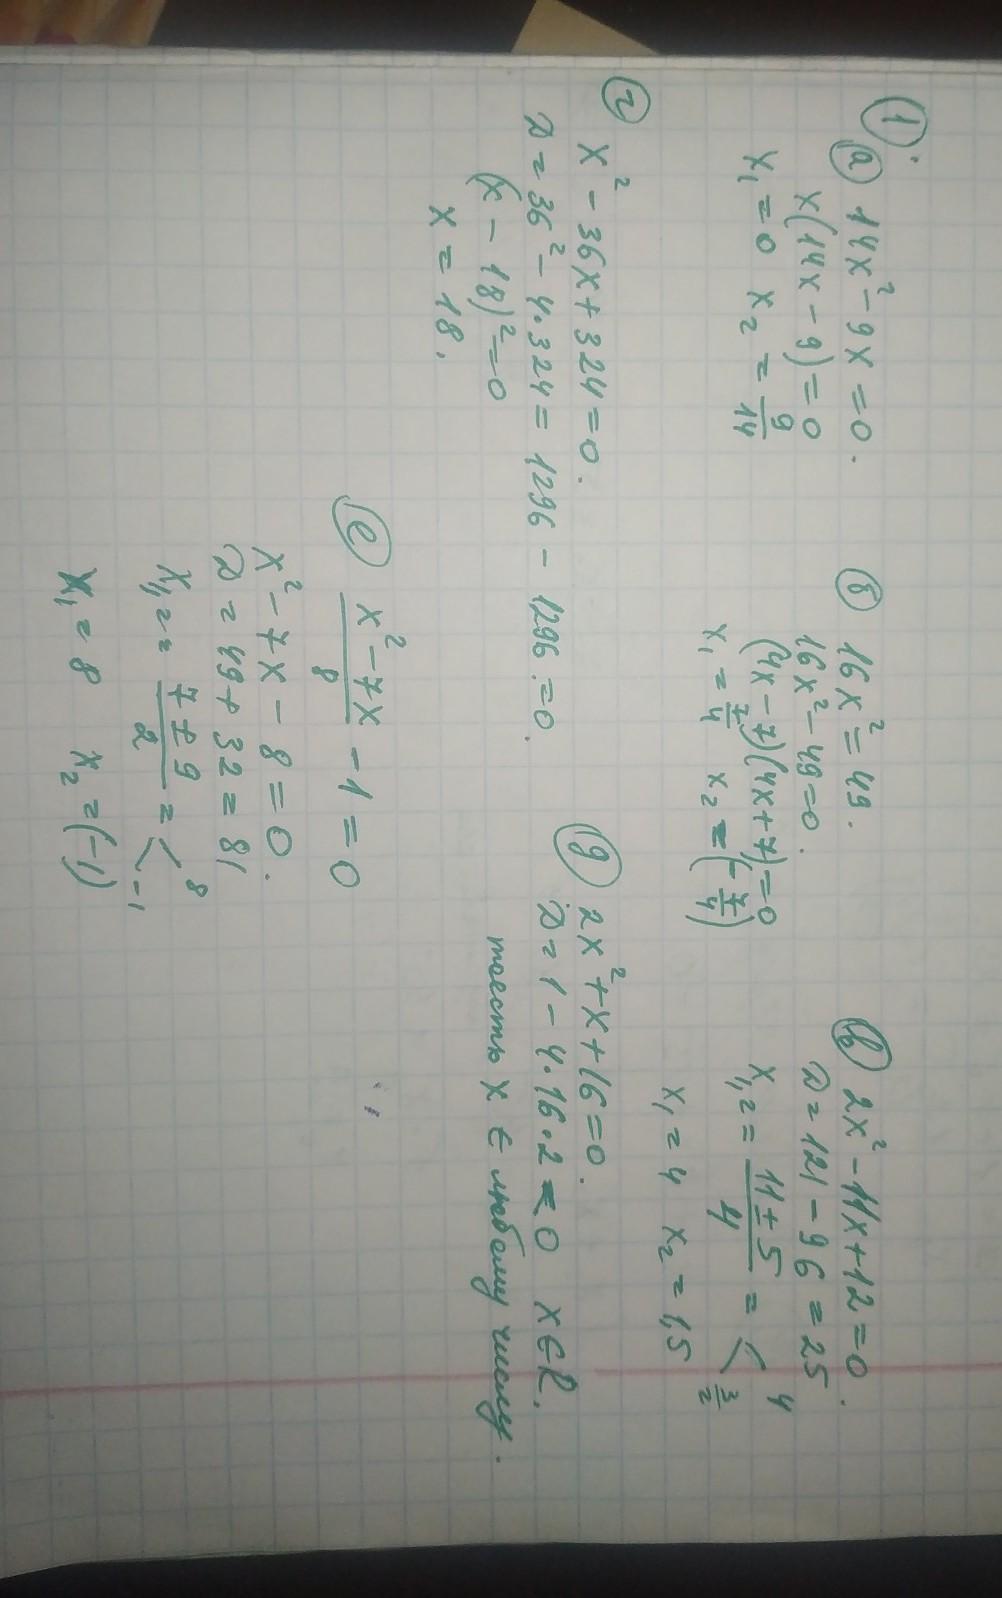 1
а 14x² - 9x = 0.
x(14x - 9) = 0
x₁ = 0 x₂ = 9/14
б 16x² = 49.
16x² - 49 = 0.
(4x - 7)(4x + 7) = 0
x₁ = 7/4 x₂ = (-7/4)
в 2x² - 11x + 12 = 0.
D = 121 - 96 = 25
x₁,₂ = (11 ± 5)/4 = < 4 3/2
x₁ = 4 x₂ = 1,5
г x² - 36x + 324 = 0.
D = 36² - 4·324 = 1296 - 1296 = 0.
(x - 18)² = 0
x = 18.
g 2x² + x + 16 = 0.
D = 1 - 4·16·2 < 0 x ∈ R.
тоесть x ∈ любому числу.
e (x² - 7x)/8 - 1 = 0
x² - 7x - 8 = 0.
D = 49 + 32 = 81
x₁,₂ = (7 ± 9)/2 = < 8 -1
x₁ = 8 x₂ = (-1)